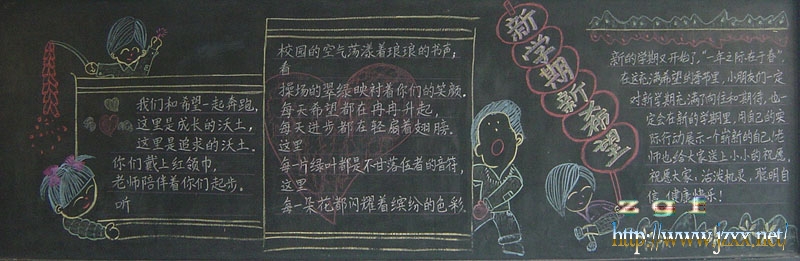 我们和希望一起奔跑,
这里是成长的沃土,
这里是追求的沃土。
你们戴上红领巾,
老师陪伴着你们起步。
听
校园的空气荡漾着琅琅的书声,
看
操场的翠绿映衬着你们的笑颜。
每天希望都在冉冉升起,
每天进步都在轻扇着翅膀。
这里
每一片绿叶都是不甘落伍者的音符,
这里
每一朵花都闪耀着缤纷的色彩.
新学期新希望
新的学期又开始了,“一年之际在于春”
在这充满希望的季节里,小朋友们一定
对新学期充满了向往和期待,也一
定会在新的学期里,用自己的实
际行动展示一个崭新的自己!老
师也给大家送上小小的祝愿,
祝愿大家:活泼机灵、聪明自
信、健康快乐!
zgf
http://www.jzxx.net/